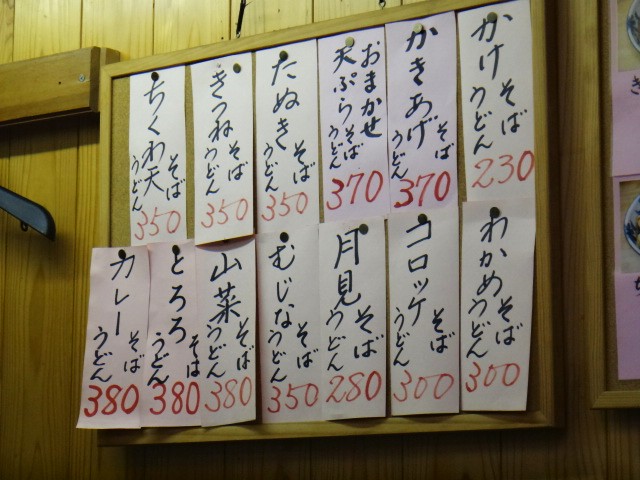 かけ そば うどん 230
かきあげ そば うどん 370
おまかせ 天ぷら そば うどん 370
たぬき そば うどん 350
きつね そば うどん 350
ちくわ天 そば うどん 350
わかめ そば うどん 300
コロッケ そば うどん 300
月見 そば うどん 280
むじな そば うどん 350
山菜 そば うどん 380
とろろ そば うどん 380
カレー そば うどん 380